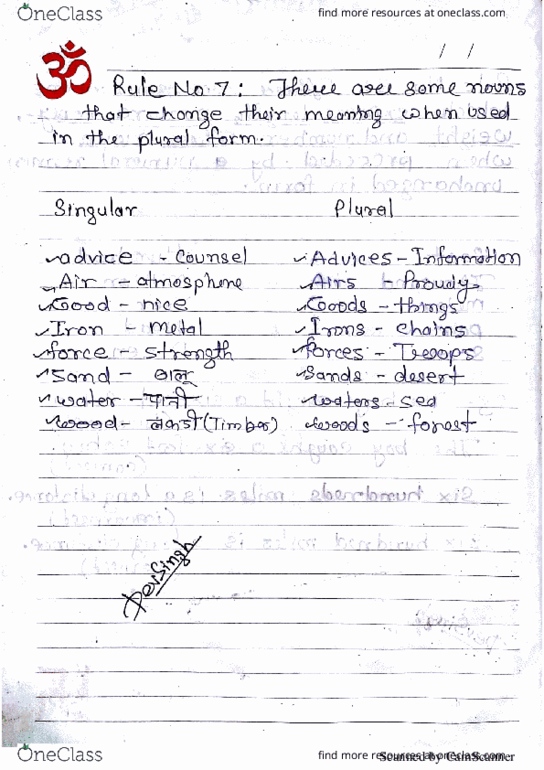 OneClass
find more resources at oneclass.com
ॐ
/ /
Rule No 7: There are some nouns
that change their meaning when used
in the plural form.
Singular Plural
advice - counsel Advices - Information
Air - atmosphere Airs - Proudy
Good - nice Goods - things
Iron - metal Irons - chains
force - strength forces - Troops
Sand - बालू Sands - desert
water - पानी waters - sea
wood - लकड़ी (Timber) woods - forest
DevSingh
OneClass
find more resources at oneclass.com
Scanned by CamScanner